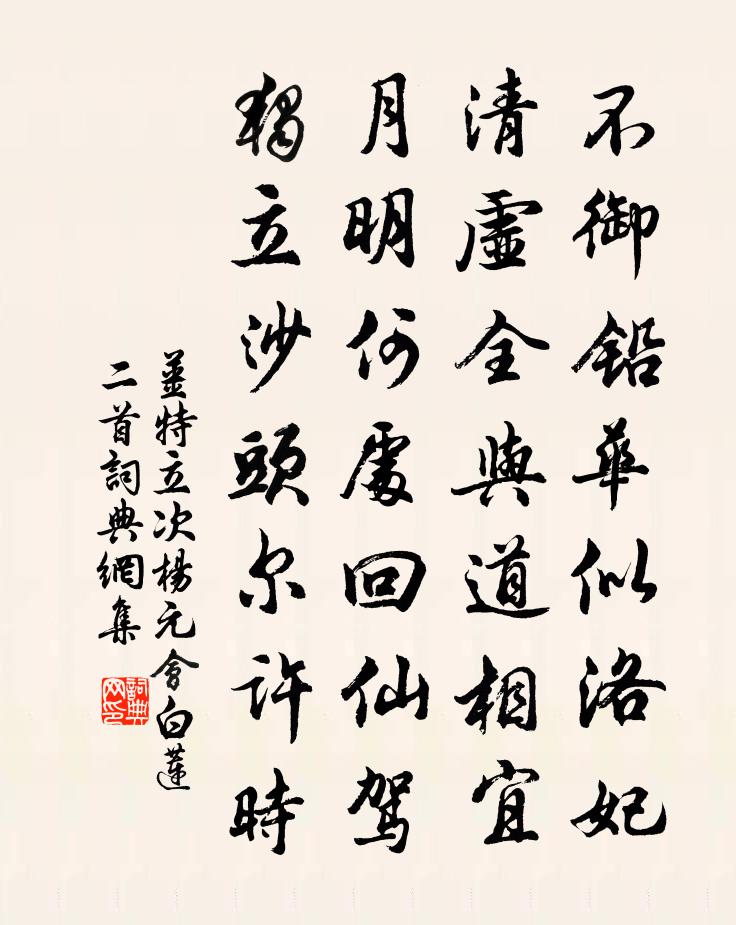 不御鉛華似洛妃
清虛全與道相宜
月明何處回仙駕
獨立沙頭尔許時
姜特立次楊元會白蓮
二首詞典網集
詞典网印